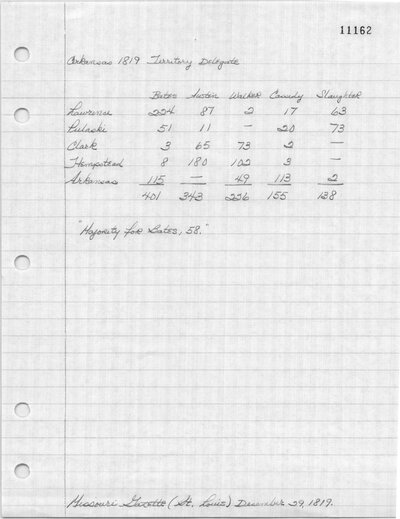 11162
Arkansas 1819 Territory Delegate
Bates Austin Walker Cassidy Slaughter
Lawrence 224 87 2 17 63
Pulaski 51 11 — 20 73
Clark 3 65 73 2 —
Hempstead 8 180 102 3 —
Arkansas 115 — 49 113 2
401 343 226 155 138
"Majority for Bates, 58."
Missouri Gazette (St. Louis) December 29, 1819.